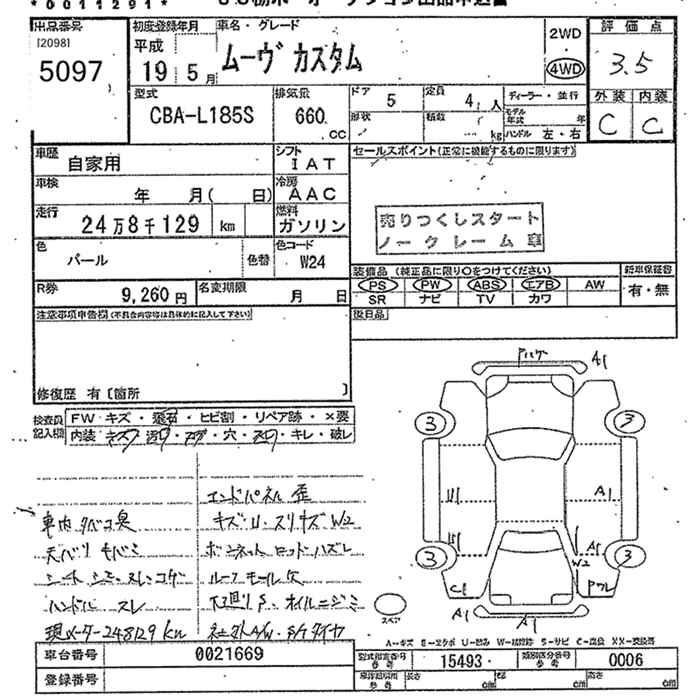 *0011291*
出品番号
[2098]
5097
初度登録年月
平成
19年5月
車名・グレード
ムーヴ カスタム
2WD
4WD
評価点
3.5
外装 内装
C C
型式
CBA-L185S
排気量
660
cc
ドア
5
定員
4 人
ディーラー・並行
形状
積数
kg
モデル年式 年
ハンドル 左・右
車歴
自家用
シフト
IAT
セールスポイント(正常に機能するものに限ります)
車検
年 月( 日)
冷房
AAC
走行
24万8千129 km
燃料
ガソリン
売りつくしスタート
ノークレーム車
色
パール
色替
色コード
W24
装備品 (純正品に限り○をつけてください)
新車保証書
PS PW ABS エアB AW
有・無
SR ナビ TV カワ
R券
9,260円
名変期限
月 日
注意事項申告欄(不具合内容等は具体的に記入して下さい)
後日品
修復歴 有〔箇所 〕
検査員記入欄
FW キズ・飛石・ヒビ割・リペア跡・×要
内装 キズ・汚・コゲ・穴・スレ・キレ・破レ
エンドパネル 歪
車内 タバコ臭
キズ・U・スリキズ W2
天バリ
ボーネット ロッド ハズレ
シート シミ・スレ・コゲ
ルーフモール 欠
ハンドル スレ
下廻りS・オイルニジミ
現メーター248129km
社外A/W・S/Tタイヤ
A1
3 3
A1
A1
3 3
W2
C1
A1
A1
スペア
A-キズ E-エクボ U-凹み W-補修跡 S-サビ C-腐蝕 XX-交換済
車台番号
0021669
型式指定番号
参考
15493
類別区分番号
参考
0006
登録番号
長さ cm
幅 cm
高さ cm